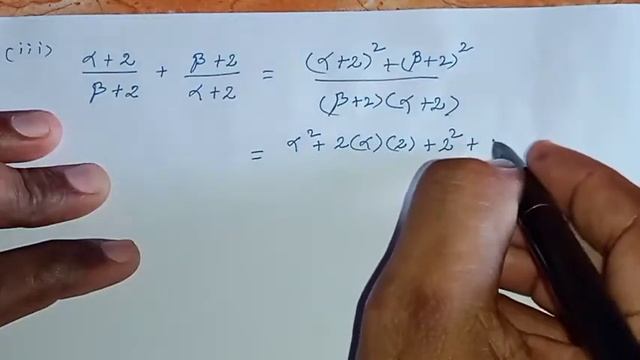 (iii) (α+2)/(β+2) + (β+2)/(α+2) = ((α+2)² + (β+2)²)/((β+2)(α+2))
= α² + 2(α)(2) + 2² +